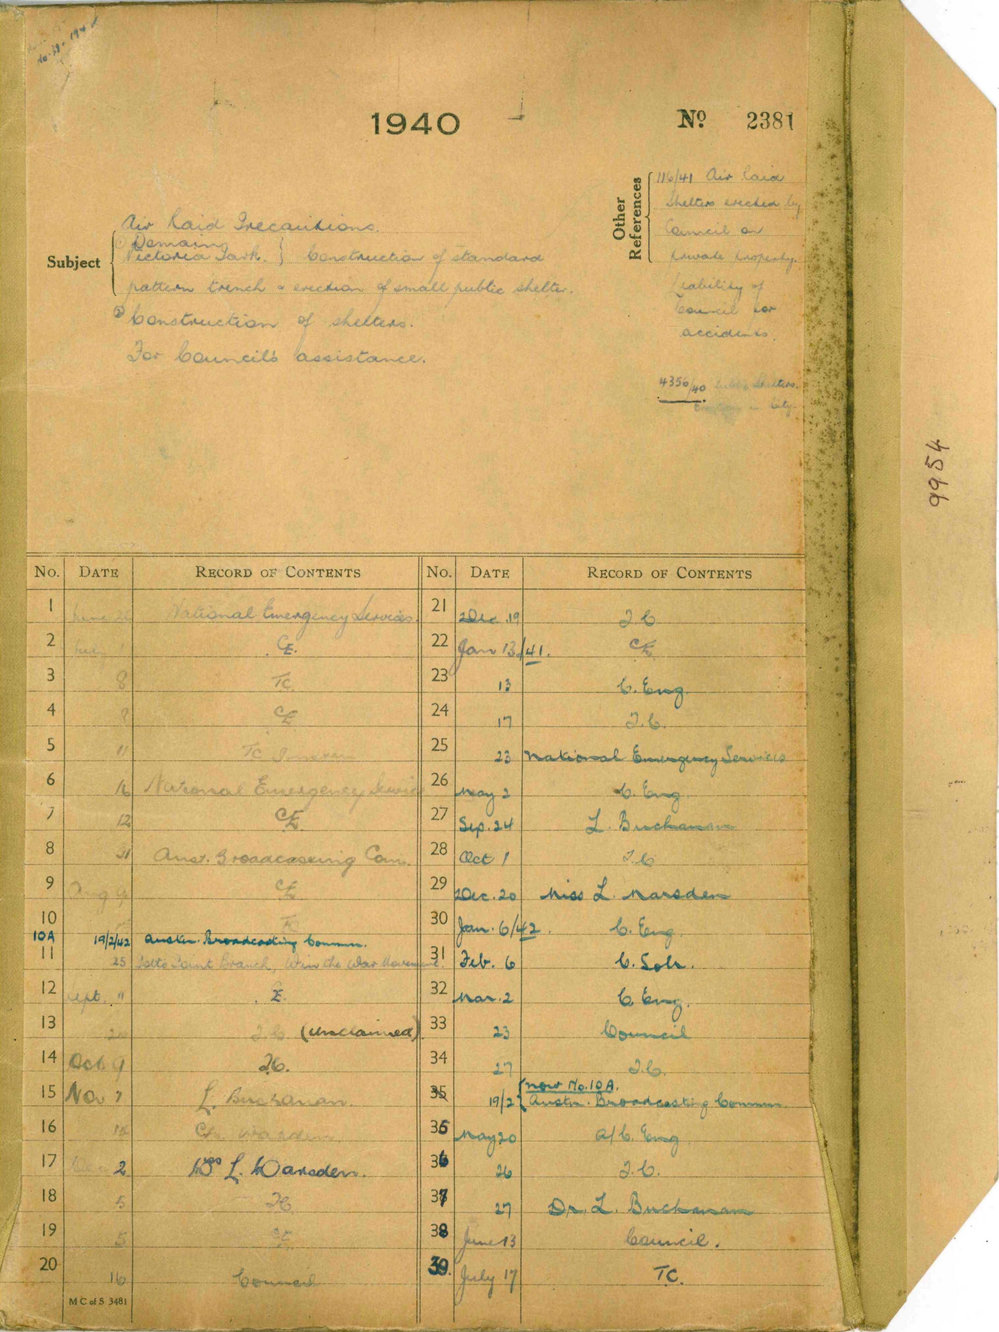 1940
No 2381
Other References
116/41 Air Raid
Shelters erected by
Council on
private property.
Liability of
Council for
accidents.
4356/40 Shelters.
City.
Subject
Air Raid Precautions.
① Domain
Victoria Park. } Construction of standard
pattern trench & erection of small public shelter.
② Construction of shelters.
For Council's assistance.
9954
No. DATE RECORD OF CONTENTS
1 June National Emergency Services.
2 July CE.
3 8 TC
4 CE
5 11 TC
6 16 National Emergency Services
7 12 CE.
8 31 Aust. Broadcasting Com.
9 Aug CE
10 TC
10A 19/2/42 Austn. Broadcasting Commn.
11 25 Potts Point Branch, Win the War Movement.
12 Sept. 11 CE.
13 T.C (unclaimed).
14 Oct 9 T.C.
15 Nov 7 L. Buchanan.
16
17 2 Miss L. Marsden.
18 5 TC
19 5 CE
20 16 Council
M C of S 3481
No. DATE RECORD OF CONTENTS
21 Dec. 19 T.C
22 Jan 13/41. CE
23 13 C. Eng.
24 17 T.C.
25 23 National Emergency Services
26 May 2 C. Eng.
27 Sep. 24 L. Buchanan
28 Oct 1 T.C
29 Dec. 20 Miss L. Marsden
30 Jan. 6/42. C. Eng.
31 Feb. 6 C. Solr.
32 Mar. 2 C. Eng.
33 23 Council
34 27 T.C.
35 19/2 { now No. 10A.
Austn. Broadcasting Commn.
35 May 20 A/C. Eng.
36 26 T.C.
37 27 Dr. L. Buchanan
38 June 13 Council.
39. July 17 T.C.